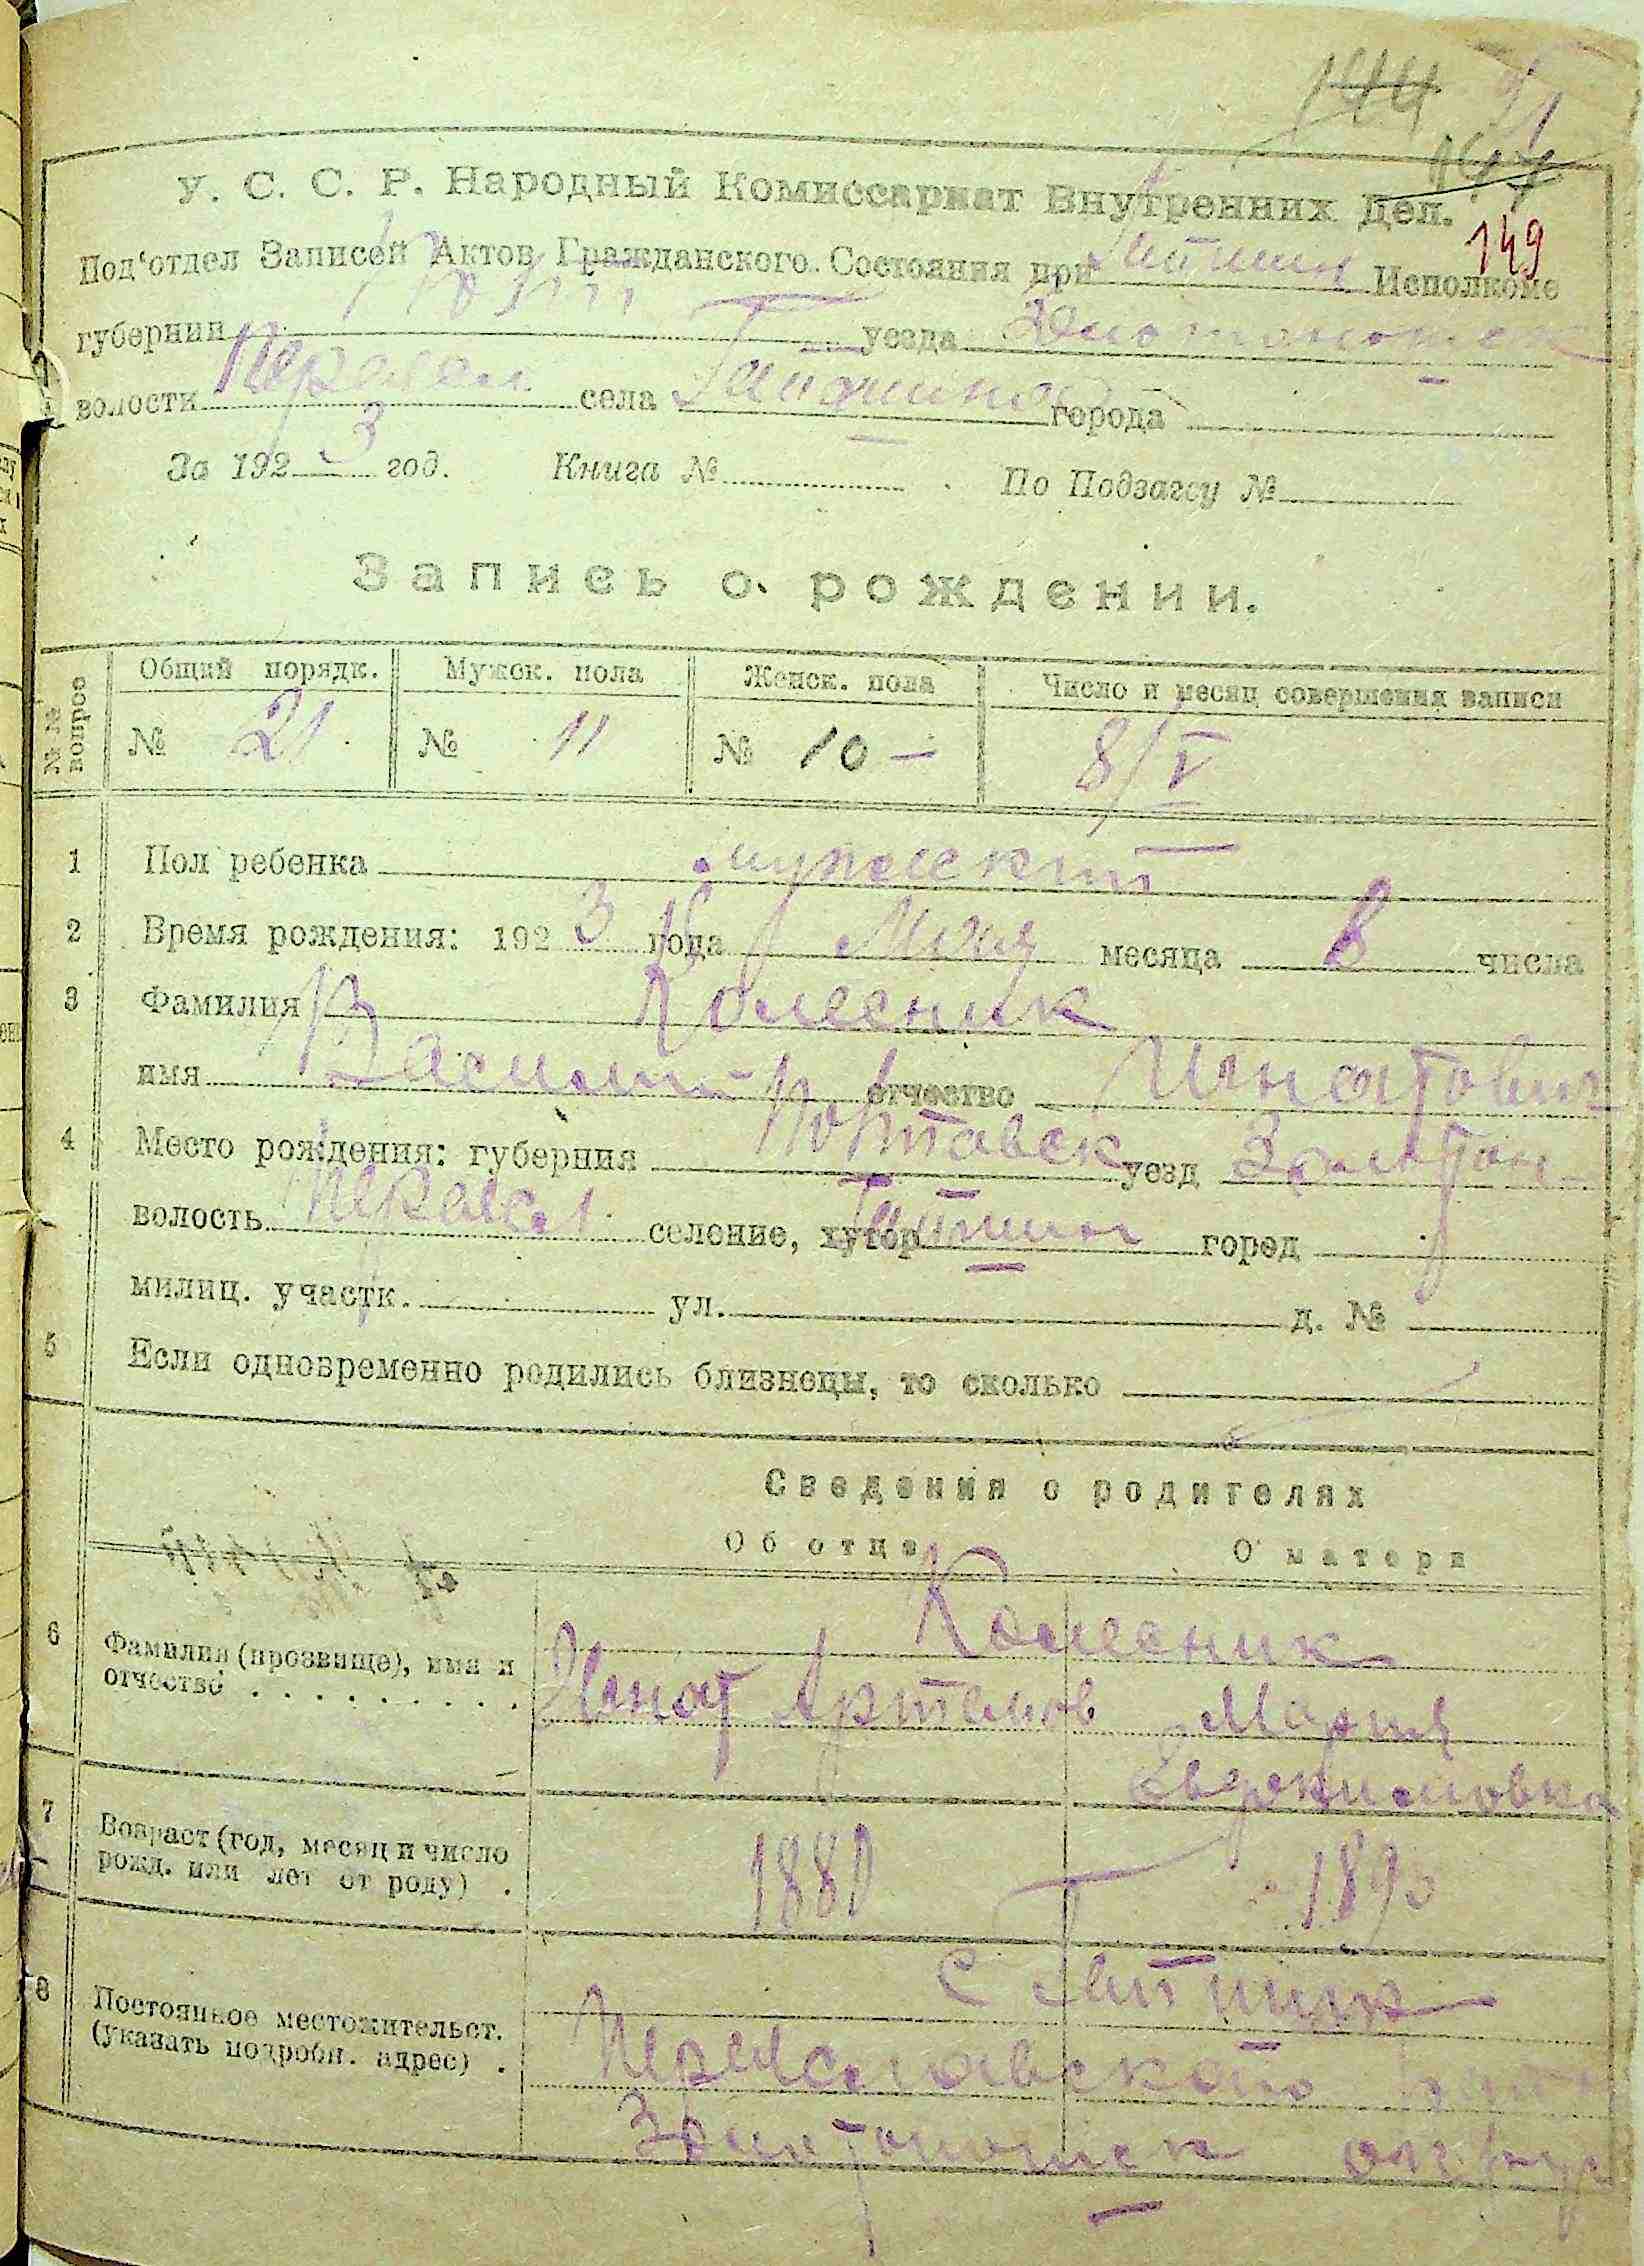 144 91
147
У. С. С. Р. Народный Комиссариат Внутренних Дел.
149
Под'отдел Записей Актов Гражданского Состояния при Исполкоме
губернии Полт уезда Золотоношск
волости Переясл села города
За 1923 год. Книга № По Подзагсу №
Запись о рождении.
№№ вопросо Общий порядк. Мужск. пола Женск. пола Число и месяц совершения записи
№ 21 № 11 № 10 — 8/V
1 Пол ребенка мужский
2 Время рождения: 1923 года Мая месяца 8 числа
3 Фамилия Колесник
имя Василий отчество Игнатович
4 Место рождения: губерния Полтавск уезд Золотон
волость Переясл селение, хутор город
милиц. участк. ул. д. №
5 Если одновременно родились близнецы, то сколько
Сведения о родителях
Об отце О матери
Колесник
6 Фамилия (прозвище), имя и
отчество . . . . . . . . . Игнат Артемов Мария
Евдокимовна
7 Возраст (год, месяц и число
рожд. или лет от роду) . 1880 1890
8 Постоянное местожительст.
(указать подробн. адрес) .
Переяславского
Золотоношск округ